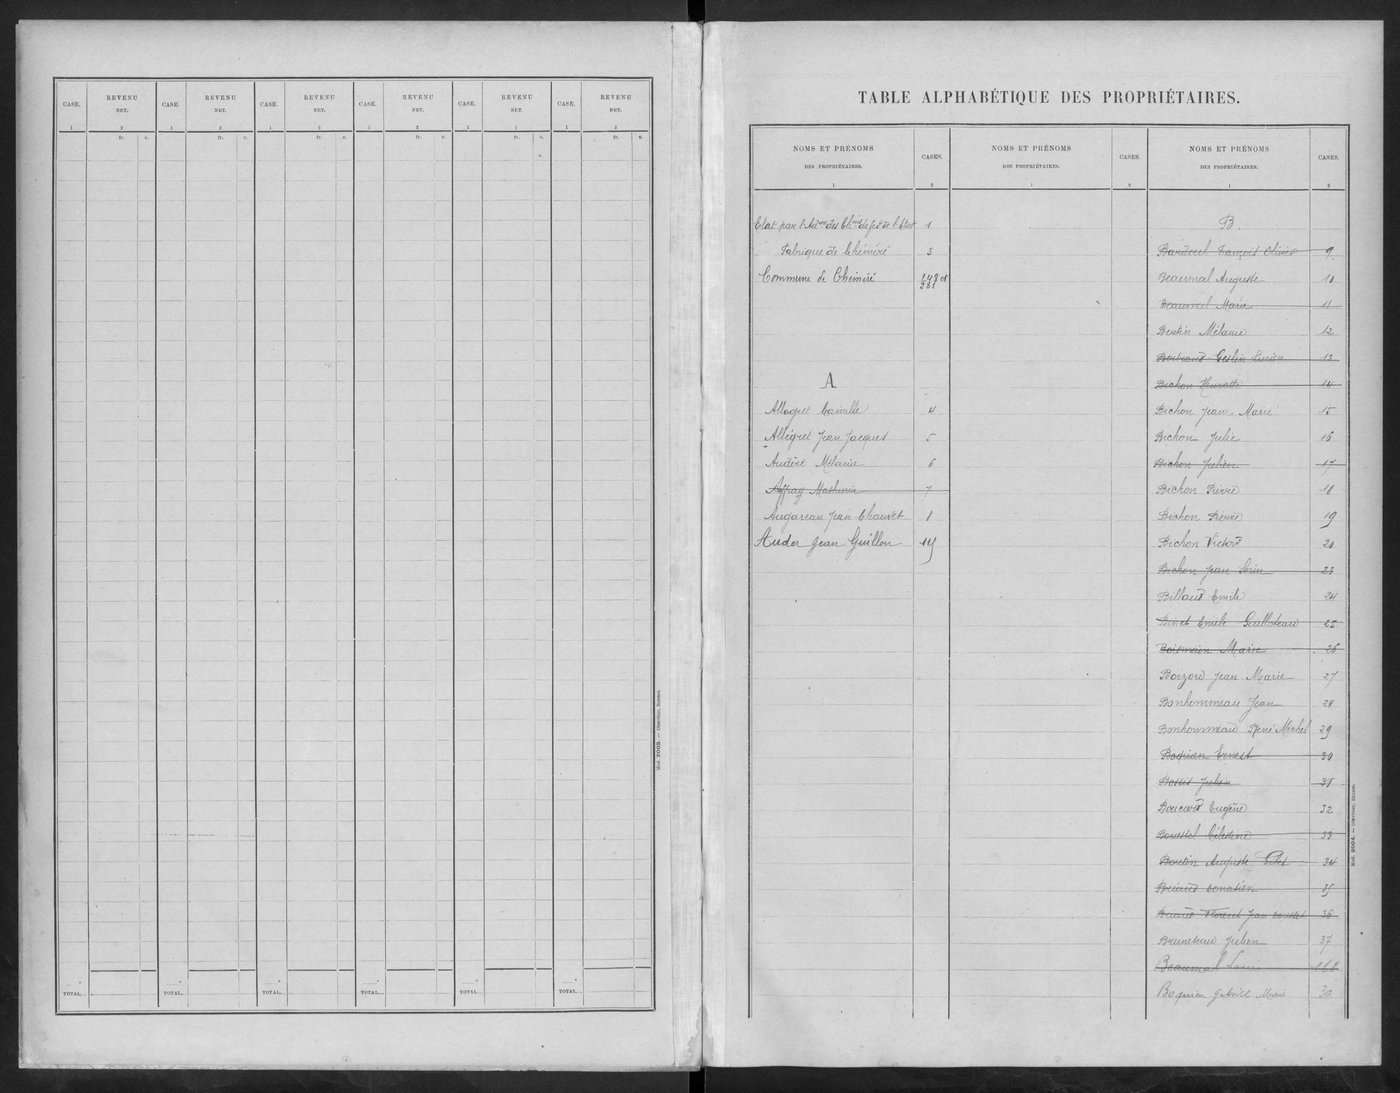 CASE. REVENU NET. CASE. REVENU NET. CASE. REVENU NET. CASE. REVENU NET. CASE. REVENU NET. CASE. REVENU NET.
1 2 1 2 1 2 1 2 1 2 1 2
fr. c. fr. c. fr. c. fr. c. fr. c. fr. c.
TOTAL.. TOTAL.. TOTAL.. TOTAL.. TOTAL.. TOTAL..
Mod. 2003. — Oberthur, Rennes.
TABLE ALPHABÉTIQUE DES PROPRIÉTAIRES.
NOMS ET PRÉNOMS DES PROPRIÉTAIRES. CASES. NOMS ET PRÉNOMS DES PROPRIÉTAIRES. CASES. NOMS ET PRÉNOMS DES PROPRIÉTAIRES. CASES.
1 2 1 2 1 2
Etat par l'Adm des Ch de fer de l'Etat 1
Fabrique de Chéméré 3
Commune de Chéméré 248 et 381
A
Allegret Camille 4
Allegret Jean Jacques 5
Audéré Mélanie 6
Affray Mathurin 7
Augareau Jean Chauvet 8
Auder Jean Guillou
B.
François Olivier 9
Beaumal Auguste 10
Beaumal Marie 11
Bertin Mélanie 12
Bertraud Geslin Lucien 13
Bichon Henriette 14
Bichon Jean Marie 15
Bichon Julie 16
Bichon Julien 17
Bichon Pierre 18
Bichon Pierre 19
Bichon Victor 20
Bichon Jean Sorin 23
Billaud Emile 24
Binet Emile Guilloteau 25
Boismain Marie 26
Boizou Jean Marie 27
Bonhommeau Jean 28
Bonhommeau René Michel 29
Boquien Ernest 30
Bossis Julien 31
Boucard Eugène 32
Célestine 33
Boutin Auguste 34
Briand Donatien 35
Briand Jean 36
Bruneteau Julien 37
Beaumal Louis 168
Boquien Gabriel Marie 30
Mod. 2004. — Oberthur, Rennes.